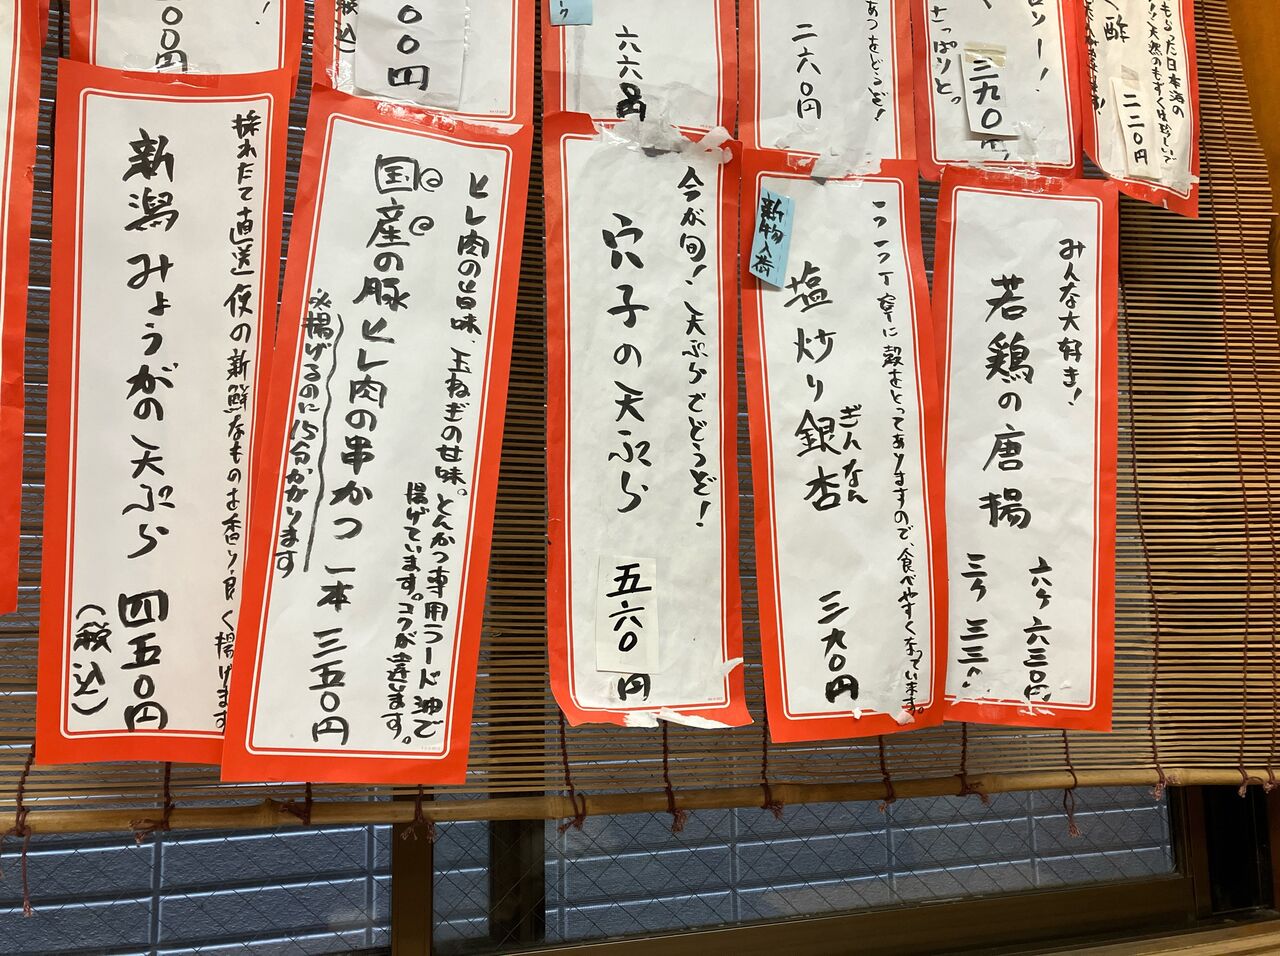 もらった日本海の
天然のもずくは珍しいで
酢
二二〇円
ロソー!
さっぱりと。
三九〇円
あつをどうぞ!
二六〇円
六六〇円
〇〇円
税込)
〇〇円
みんな大好き!
若鶏の唐揚
六ケ六三〇円
三ケ三三〇
新物入荷
一つ一つ丁寧に殻をとってありますので、食べやすくなっています。
塩炒り銀杏
ぎんなん
三九〇円
今が旬!天ぷらでどうぞ!
穴子の天ぷら
五六〇円
ヒレ肉の旨味、玉ねぎの甘味。とんかつ専用ラード油で
揚げています。コクが違います。
国産の豚ヒレ肉の串かつ 一本 三五〇円
※揚げるのに15分かかります
採れたて直送便の新鮮なものを香り良く揚げます
新潟みょうがの天ぷら 四五〇円
(税込)